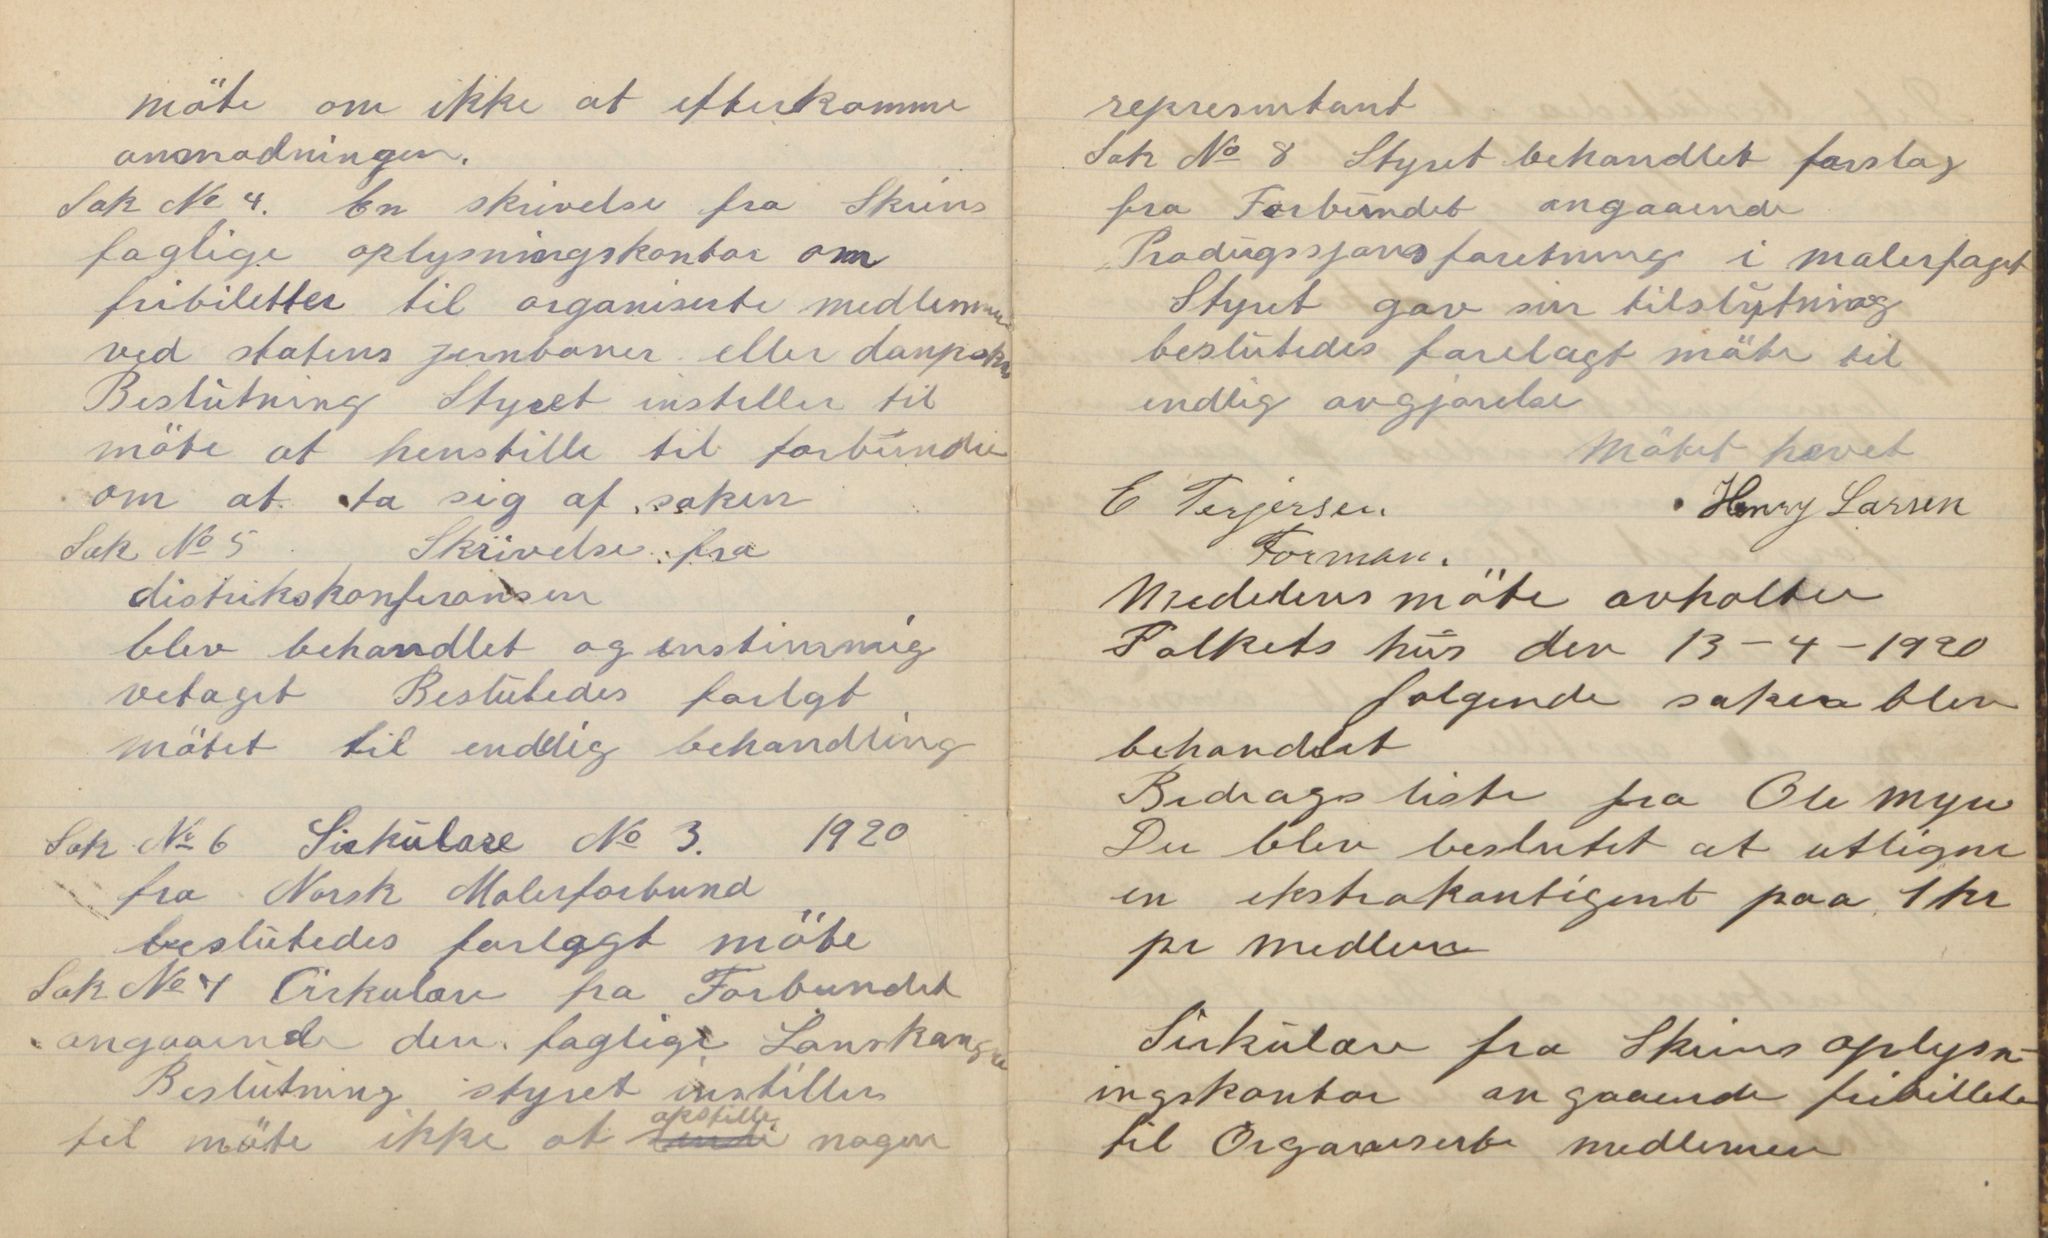 möte om ikke at efterkomme
anmodningen.
Sak No 4. En skrivelse fra Skiens
faglige oplysningskontor om
fribiletter til organiserte medlemmer
ved statens jernbaner eller danpskos
Beslutning Styret instiller til
möte at henstille til forbundie
om at ta sig af saken
Sak No 5 Skrivelse fra
distrikskonferansen
blev behandlet og enstimmig
vetaget Beslutedes forlgt
mötet til enddig behandling
Sak No 6 Sirkulare No 3. 1920
fra Norsk Malerforbund
beslutedes forlagt möte
Sak No 7 Cirkulare fra Forbundet
angaaende den faglige Lanskongre
Beslutning styret instiller
til möte ikke at opstille nogen
represntant
Sak No 8 Styret behandlet forslag
fra Forbundet angaaende
Produgssjons foretning i malerfaget
Styret gav sin tilslutning
beslutedes forelagt möte til
endlig avgjorelse
Mötet hevet
E Terjersen. Henry Larsen
Forman.
Medelems möte avholtes
Folkets hus den 13-4-1920
folgende saker blev
behandlet
Bedrags liste fra Ole Myre
De blev beslutet at utligne
en ekstrakontigent paa 1 kr
pr medlem
Sirkulare fra Skiens oplysn-
ingskontor angaaende fribillete
til Organiserte medlemmer